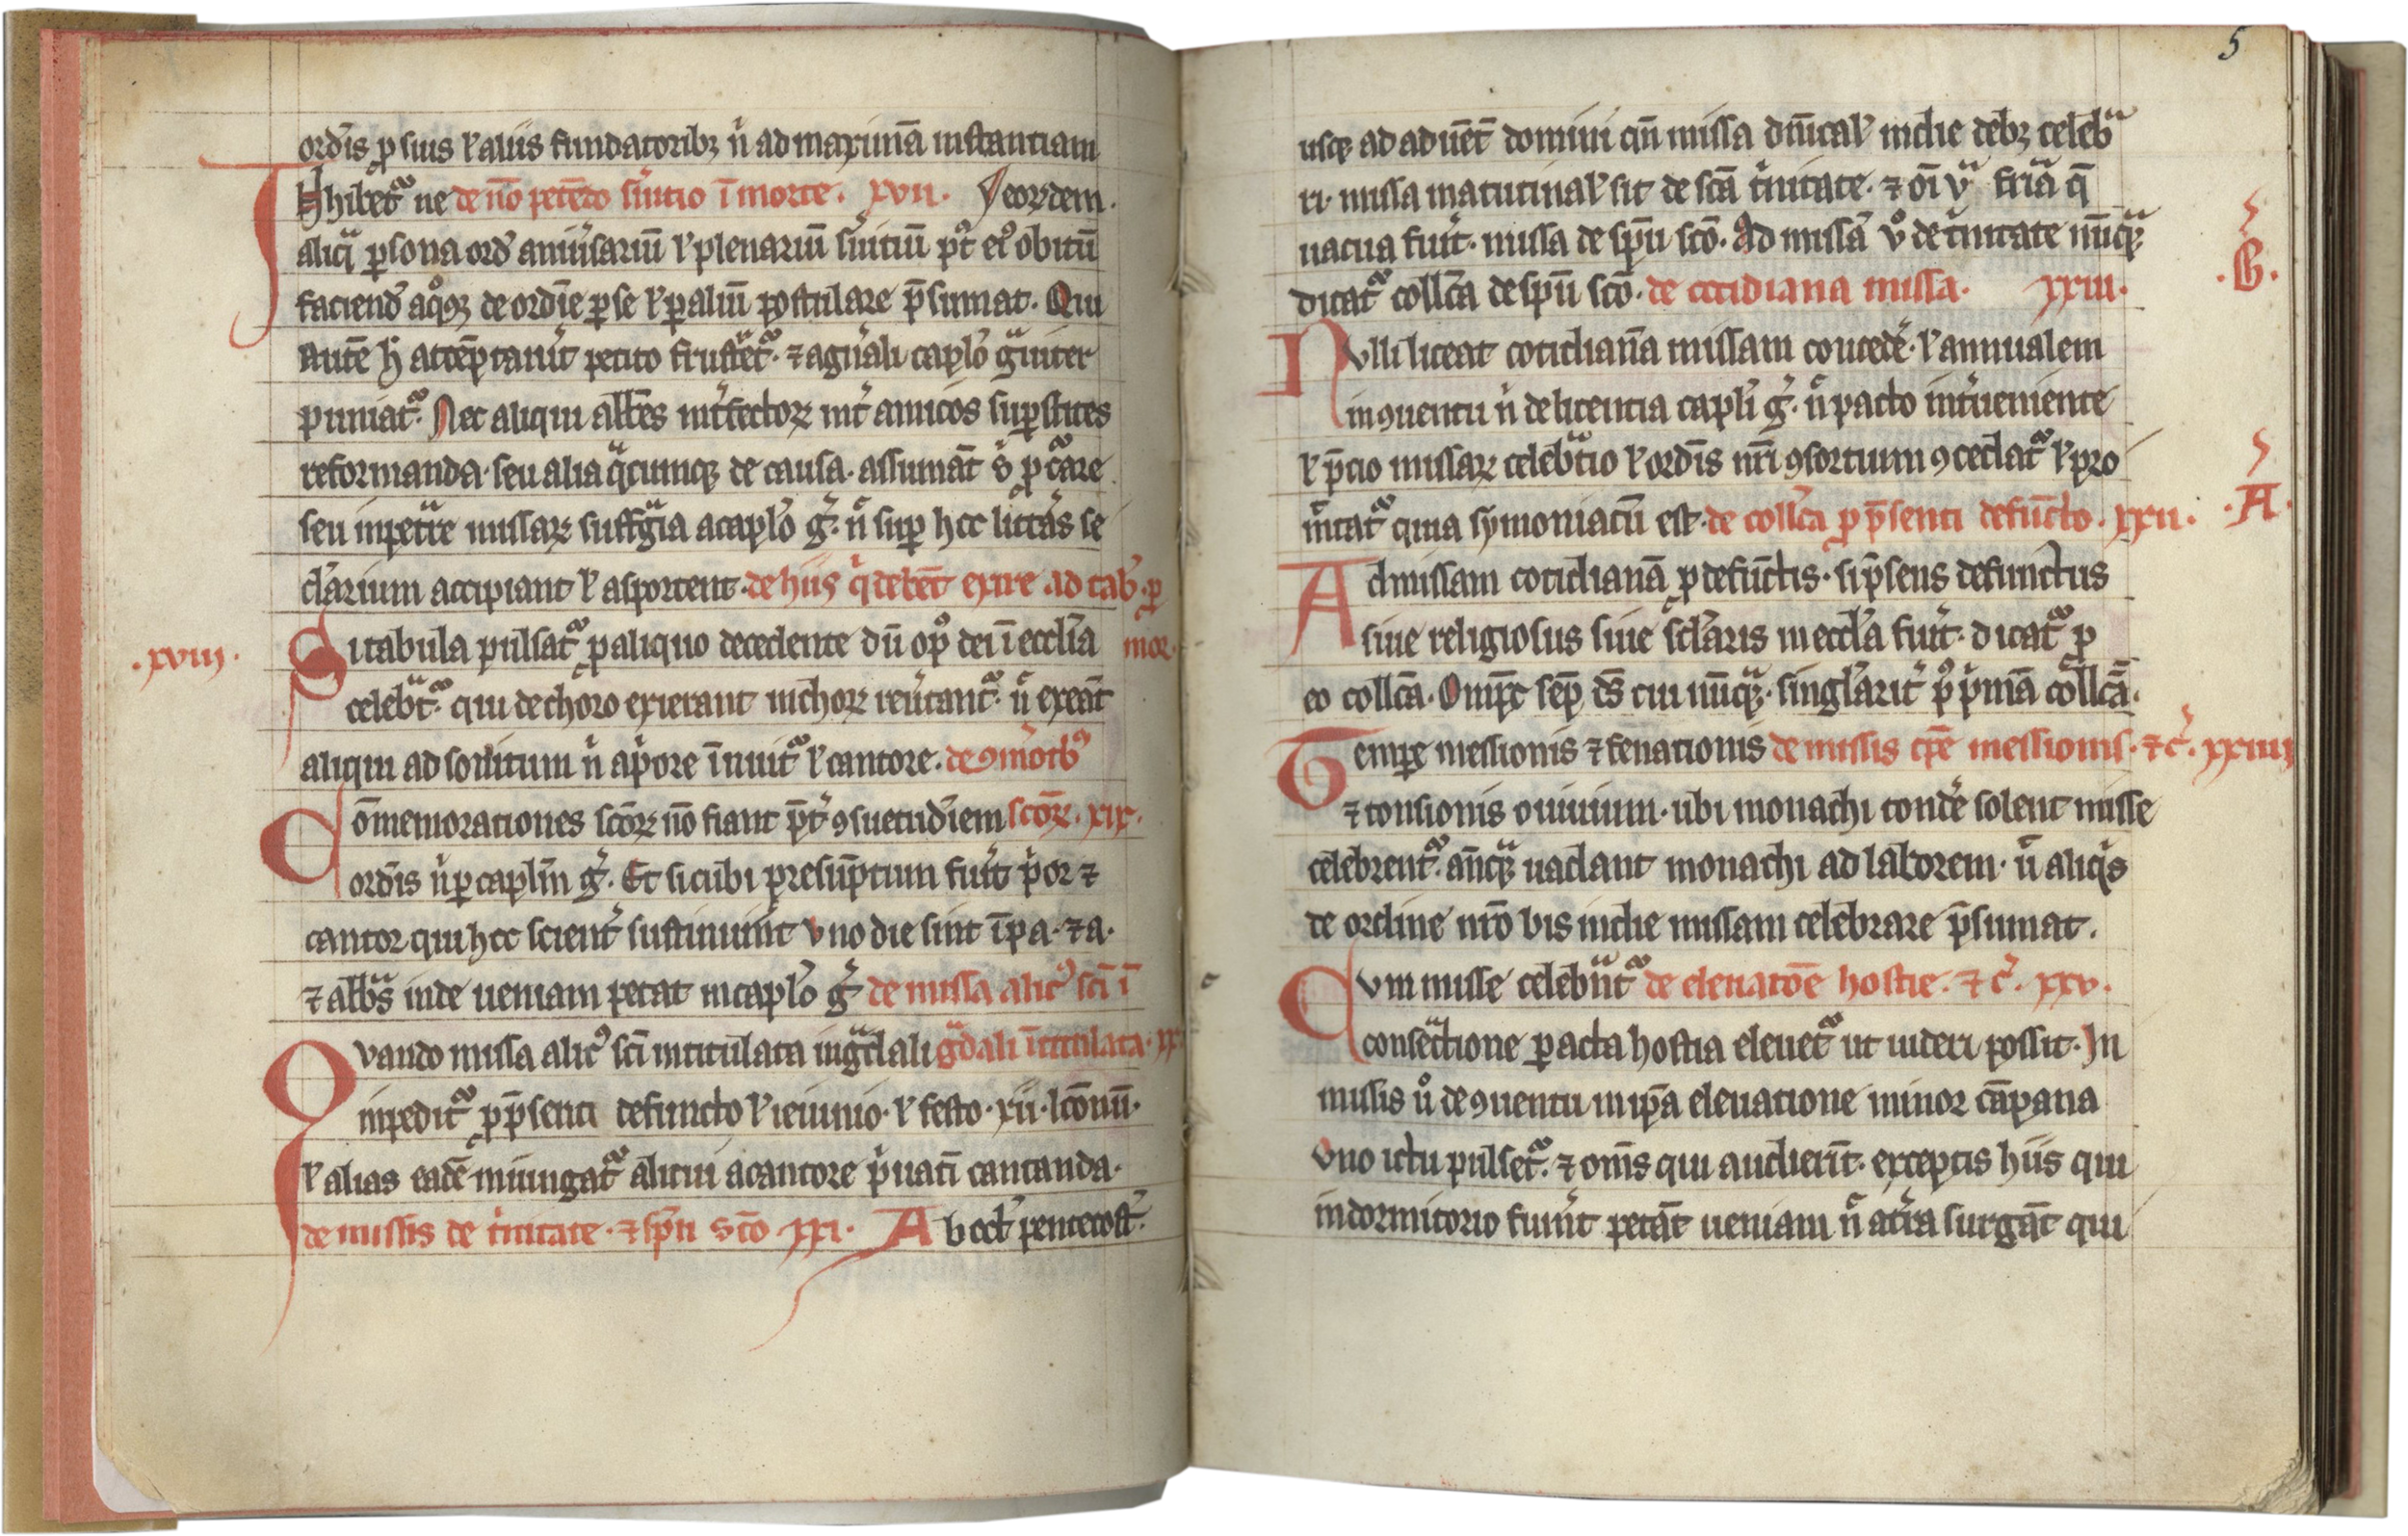 ordīs ꝓ suis ł aliis fundatoribꝫ n̄ ad maximā instantiam
Jhibet᷑ ne de nō petēdo s̄uitio ī morte. xvii. Jeordem.
aliq̄ ꝑsona ord̄ anniūsariū ł plenariū s̄uitiū pꝰ eiꝰ obitū
faciend̄ aqͦqꝫ de ordīe ꝑ se ł ꝑ aliū postulare p̄sumat. Qui
autē h̄ attēptauīt petito frustēt᷑. ⁊ a gn̄ali capło gͣuiter
puniat᷑. Nec aliqui abb̄es int̄fectoꝝ int̄ amicos suꝑstites
reformanda. seu alia qͣcumqꝫ de causa. assumāt s̄ ꝓcͣare
seu inpetͣre missaꝝ suffgͣia a capło ḡ. n̄ suꝑ hec litt̄as se
cłarium accipiant ł asportent. de hiis q̄ debēt exire ad tab̄. ꝓ
mor.
.xviii.
Si tabula pulsat᷑ ꝓ aliquo decedente dū opꝰ dei ī ecclīa
celebͣt᷑. qui de choro exierant in choꝝ reūtant᷑. n̄ exeāt
aliqui ad sollitum n̄ a p̄ore īnuit᷑ ł cantore. de 9m̄orībꝰ
Cōmemorationes scōꝝ nō fiant p̄t̄ 9suetudīem scōꝝ. xix.
ordīs n̄ ꝑ caplīm ḡ. Et sicubi presūptum fuīt p̄or ⁊
cantor qui hec scient̄ sustinuīnt vno die sint ī pa. ⁊ a.
⁊ abb̄s inde ueniam petat in capło ḡ de missa alicꝰ scī ī
Qvando missa alicꝰ scī intitulata in gͣdali gͣdali ītitulata. xx
inpedit᷑ ꝓ p̄senti defuncto ł ieiunio. ł festo. xii. lc̄onū.
ł alias eadē iniungat᷑ alicui a cantore p̄uatī cantanda.
de missis de t̄nitate. ⁊ spū scō xxi. Ab oct̄ pentecost̄.
5
usqꝫ ad aduēt̄ domini qn̄ missa dn̄ical̄ indie debꝫ celebͣ
ri. missa matutinal̄ sit de scā t̄nitate. ⁊ oī vͣ fr̄ia q̄
uacua fuīt. missa de spū scō. Ad missā v̊ de t̄nitate nūqͣꝫ
dicat᷑ collc̄a de spū scō. de cotidiana missa. xxiii.
.B.
Nvlli liceat cotidianā missam concedē. ł annualem
in 9uentu n̄ de licentia capłi ḡ. n̄ pacto int̄ueniente
ł p̄cio missaꝝ celebͣtio ł ordīs nr̄i 9sortium 9cedat᷑ ł pro
mītat᷑ quia symoniacū est. de collc̄a ꝓ p̄senti defūcto. xxii.
.A.
Ad missam cotidianā ꝓ defūctis. si p̄sens defunctus
siue religiosus siue scłaris in eccła fuīt. dicat᷑ ꝓ
eo collc̄a. Omp̄c semꝑ ds̄ cui nūqͣꝫ. singłarit̄ pꝰ p̄mā collc̄ā.
Tempꝫe messionis ⁊ fenationis de missis tp̄e messionis. ⁊ c̄. xxiiii
⁊ tonsionis ouiuium. ubi monachi tondē solent misse
celebrent᷑. an̄qͣꝫ uadant monachi ad laborem. n̄ aliq̄s
de ordine nr̄o bis indie missam celebrare p̄sumat.
Cvm misse celebͣnt᷑ de eleuatōe hostie. ⁊ c̄. xxv.
consecͣtione ꝑacta hostia eleuet᷑ ut uideri possit. In
missis v̊ de 9uentu in ip̄a eleuatione minor cāpana
vno ictu pulset᷑. ⁊ om̄s qui audierīt. exceptis hiis qui
in dormitorio fuīnt petāt ueniam n̄ at̄ra surgāt qui